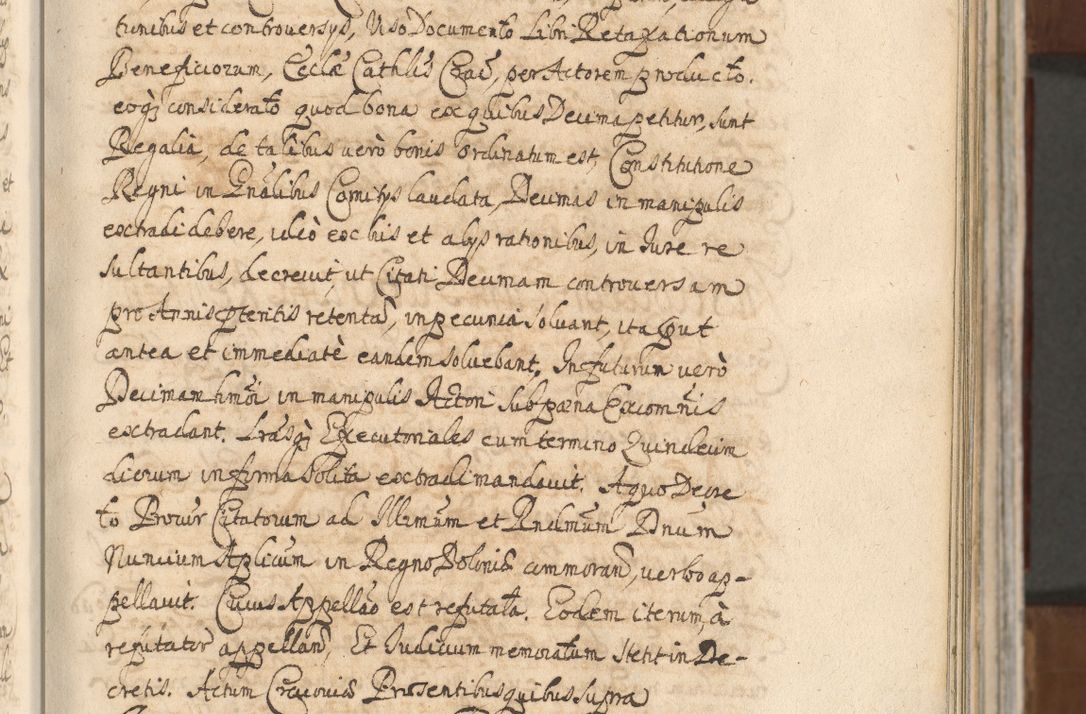 tunibus et controversys, Viso Documento Libri Retaxationum
Beneficiorum, Eccłæ Cathłis Crac̃, per Actorem producto.
eoq̃ considerato quod bona ex quibus Decima petitur, sunt
Regalia, de talibus verò bonis ordinatum est, Constitutione
Regni in Gñalibus Comitys laudata, Decimas in manipulis
extradi debere, ideò ex his et alys rationibus, in Iure re
sultantibus, decrevit, ut Citati Decimam controversam
pro Annis p̃teritis retentã, in pecunia solvant, ita prout
antea et immediatè eandem solvebant. In futurum verò
Decimam hmõi in manipulis Actori sub pæna Excom̃nis
extradant. Lr̃asq̃ Executoriales cum termino Quindecim
dierum in forma solita extradi mandavit. A quo Decre
to Procur̃ Citatorum ad Illm̃um et Rndm̃um Dnum̃
Nuncium Aplicum̃ in Regno Poloniæ commoran̄, verbo ap-
pellavit. Cuius Appellão est refutata. Eodem iterum, à
refutator̃ appellan̄, Et Iudicium memoratum stetit in De-
cretis. Actum Cracoviæ Præsentibus quibus supra